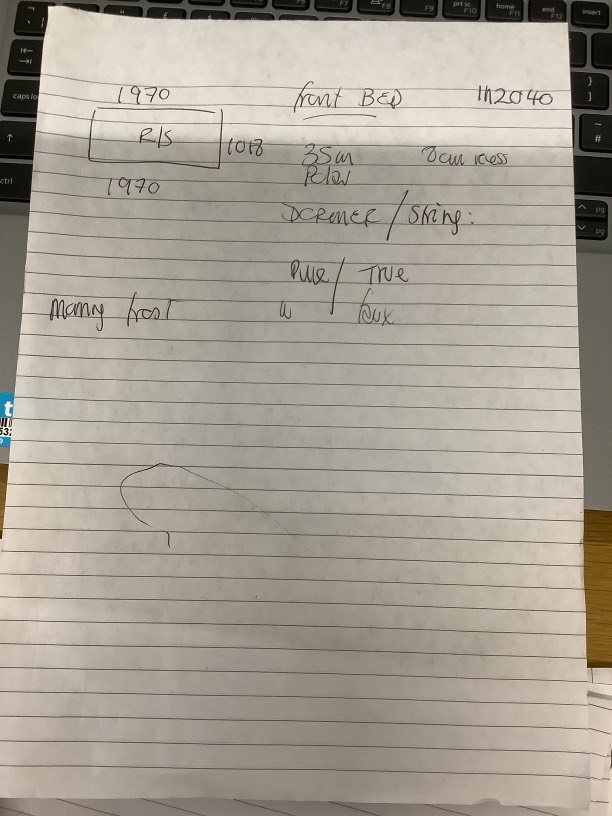 1970 front BED 1h2040
R/S 1018 35cm 8cm recess
1970
DORMER / String:
Pure / True
Manny frost faux
caps lo
ctrl
F7 F8 F9 prt sc F10 home F11 end F12 insert